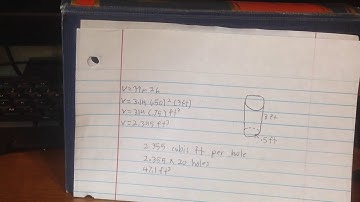 V=πr²h
V=3.14(.50)²(3ft)
V=3.14(.75)ft³
V=2.355ft³
3ft
.5ft
2.355 cubic ft per hole
2.355 x 20 holes
47.1 ft³